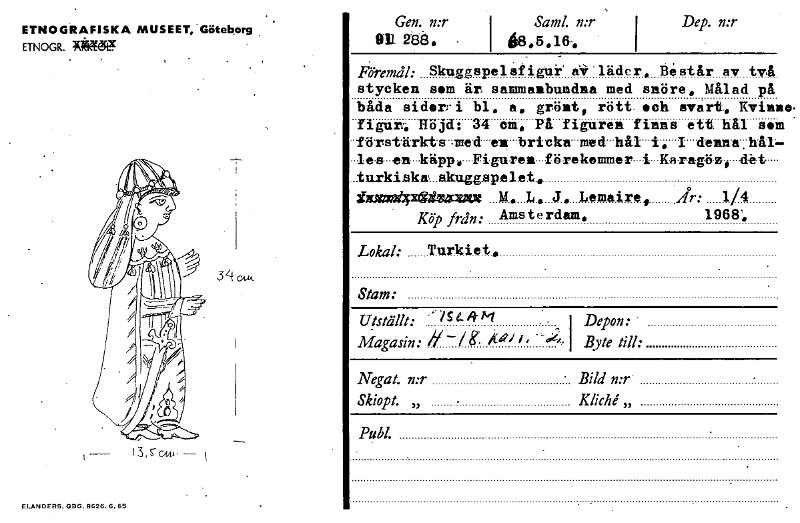 ETNOGRAFISKA MUSEET, Göteborg
ETNOGR.
34 cm
13,5 cm
ELANDERS. GBG. 8626. 6. 65
Gen. n:r Saml. n:r Dep. n:r
91 288. 68.5.16.
Föremål: Skuggspelsfigur av läder. Består av två
stycken som är sammanbundna med snöre. Målad på
båda sidor i bl. a. grönt, rött och svart. Kvinno-
figur. Höjd: 34 cm. På figuren finns ett hål som
förstärkts med en bricka med hål i. I denna hål-
les en käpp. Figuren förekommer i Karagöz, det
turkiska skuggspelet.
M. L. J. Lemaire, År: 1/4
Köp från: Amsterdam. 1968.
Lokal: Turkiet.
Stam:
Utställt: ISLAM Depon:
Magasin: H-18. Byte till:
Negat. n:r Bild n:r
Skiopt. „ Kliché „
Publ.